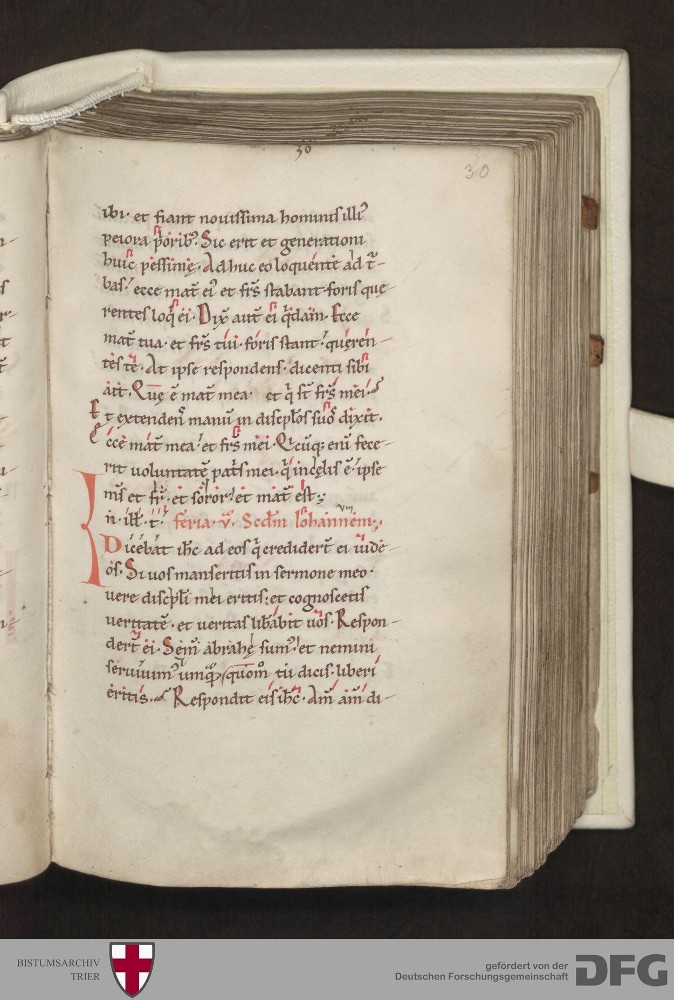 30
30
ibi· et fiant nouissima hominis illiꝰ
peiora p̄orib;. Sic erit et generationi
huic pessime. Ad huc eo loquente ad t̄-
bas: ecce mat̄ eiꝰ et fr̄s stabant foris que
rentes loq̄ ei. Dix̄ aut̄ ei q̄dam. Ecce
mat̄ tua· et fr̄s tui· foris stant: queren-
tes te. At ipse respondens· dicenti sibi
ait. Que ē mat̄ mea· et q̄ st̄ fr̄s mei.
Et extendens manū in discplōs suos dixit.
Ecce mat̄ mea: et fr̄s mei. Qicūq; eni fece-
rit voluntatē pat̄s mei· q̄ in celis ē· ipse
m̄s et fr̄· et soror· et mat̄ est;
In· ill̄· t̄· feria· v̄· Secd̄m Iohannem;
Dicebat ih̄c ad eos q̄ credidert̄ ei iude-
os. Si uos manseritis in sermone meo·
uere discpli mei eritis: et cognoscetis
ueritatē· et ueritas lib̄abit uos. Respon-
dert̄ ei. Sem̄ abrahe sumꝰ: et nemini
seruiuimꝰ umq̄· quom̄ tu dicis· liberi
eritis. Respondit eis ih̄c. Am̄ am̄ di-
BISTUMSARCHIV
TRIER
gefördert von der
Deutschen Forschungsgemeinschaft
DFG